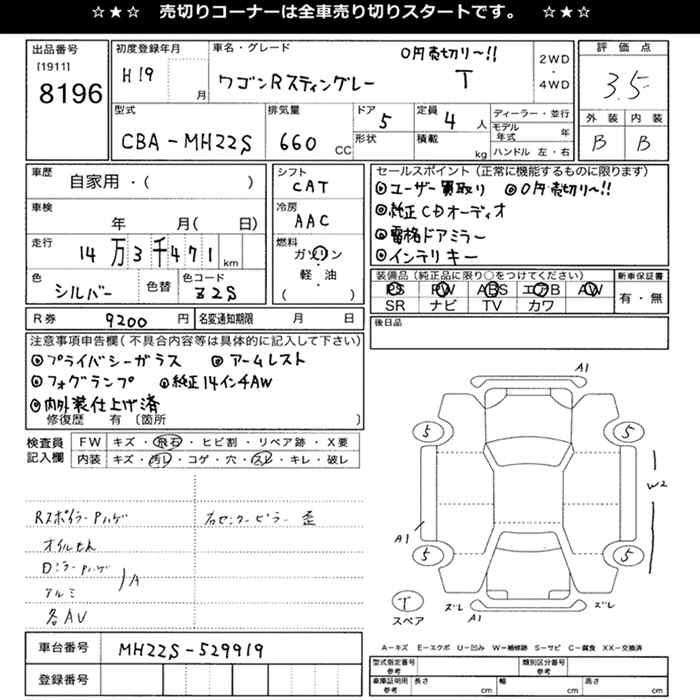 ☆★☆ 売切りコーナーは全車売り切りスタートです。 ☆★☆
出品番号 [1911] 8196
初度登録年月 H19 月
車名・グレード 0円売切リ〜!!
ワゴンRスティングレー T
2WD・4WD
評価点 3.5
外装 B 内装 B
型式 CBA-MH22S
排気量 660 CC
ドア 5
形状
定員 4 人
積載 kg
ディーラー・並行
モデル年式 年
ハンドル 左・右
車歴 自家用・( )
車検 年 月( 日)
走行 14万3千471 km
色 シルバー 色替
色コード Z2S
シフト CAT
冷房 AAC
燃料 ガソリン・軽油 ( )
セールスポイント(正常に機能するものに限ります)
◎ユーザー買取リ ◎0円売切リ〜!!
◎純正CDオーディオ
◎電格ドアミラー
◎インテリキー
装備品(純正品に限り○をつけてください) 新車保証書
PS PW ABS エアB AW 有・無
SR ナビ TV カワ
後日品
R券 9200 円 名変通知期限 月 日
注意事項申告欄(不具合内容等は具体的に記入して下さい)
◎プライバシーガラス ◎アームレスト
◎フォグランプ ◎純正14インチAW
◎内外装仕上げ済
修復歴 有〔箇所 〕
検査員記入欄
FW キズ・飛石・ヒビ割・リペア跡・X要
内装 キズ・汚レ・コゲ・穴・スレ・キレ・破レ
RスポイラーPハゲ 右センターピラー歪
オイルもれ
DミラーPハゲ
アルミ A
各AV
A1
5 5
W2
A1
5 5
T スペア
ズレ ズレ
A1
A-キズ E-エクボ U-凹み W-補修跡 S-サビ C-腐食 XX-交換済
車台番号 MH22S-529919
登録番号
型式指定番号 参考 類別区分番号 参考
車庫証明用 参考 長さ cm 幅 cm 高さ cm